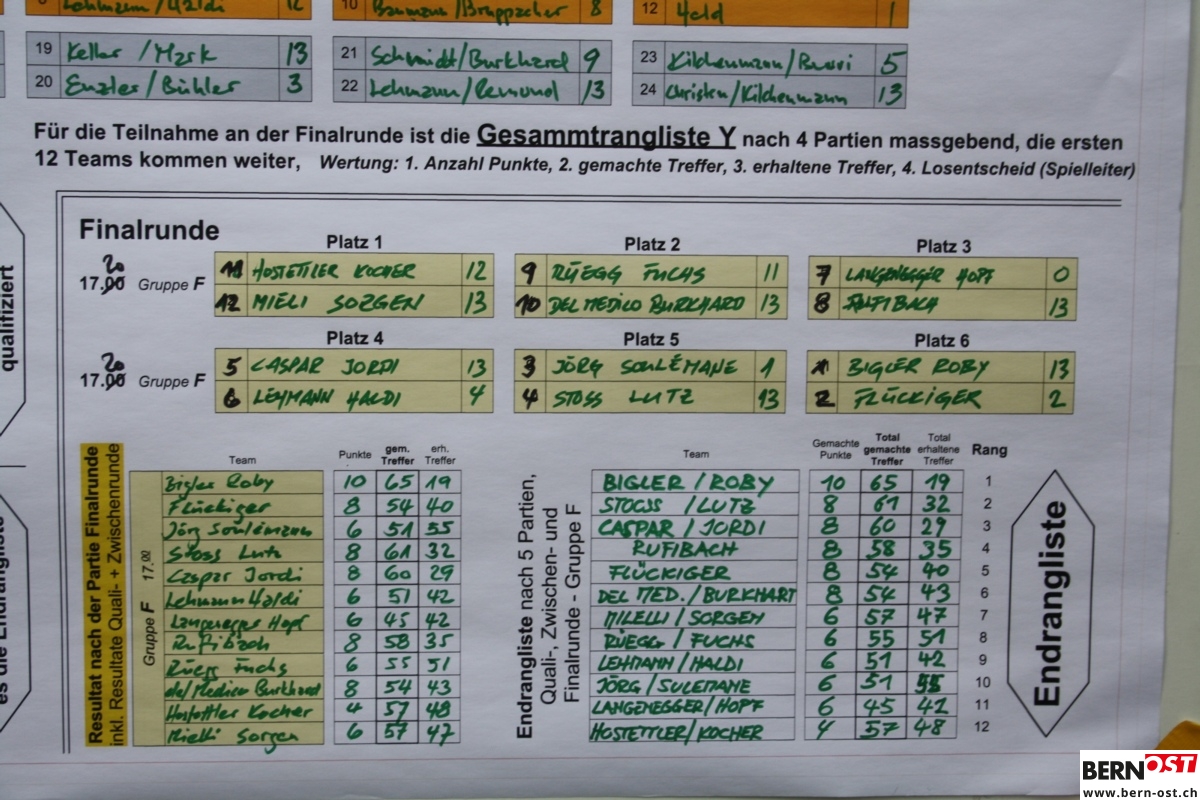 Lehmann/Haldi 12 10 Baumann/Bruppacher 8 12 Held 1
19 Keller/Mark 13 21 Schmidt/Burkhard 9 23 Kilchenmann/Burri 5
20 Enzler/Bühler 3 22 Lehmann/Remund 13 24 Christen/Kilchenmann 13
Für die Teilnahme an der Finalrunde ist die Gesammtrangliste Y nach 4 Partien massgebend, die ersten
12 Teams kommen weiter, Wertung: 1. Anzahl Punkte, 2. gemachte Treffer, 3. erhaltene Treffer, 4. Losentscheid (Spielleiter)
qualifiziert
Finalrunde
Platz 1 Platz 2 Platz 3
17.20 Gruppe F 11 HOSTETTLER KOCHER 12 9 RÜEGG FUCHS 11 7 LANGENEGGER HOPF 0
12 MIELI SORGEN 13 10 DEL MEDICO BURKHARD 13 8 RUFIBACH 13
Platz 4 Platz 5 Platz 6
17.20 Gruppe F 5 CASPAR JORDI 13 3 JÖRG SOULÉMANE 1 1 BIGLER ROBY 13
6 LEHMANN HALDI 4 4 STOSS LUTZ 13 2 FLÜCKIGER 2
Resultat nach der Partie Finalrunde
inkl. Resultate Quali- + Zwischenrunde
Gruppe F 17.00
Team Punkte gem. Treffer erh. Treffer
Bigler Roby 10 65 19
Flückiger 8 54 40
Jörg Soulémann 6 51 55
Stoss Lutz 8 61 32
Caspar Jordi 8 60 29
Lehmann Haldi 6 51 42
Langenegger Hopf 6 45 42
Rufibach 8 58 35
Rüegg Fuchs 6 55 51
del Medico Burkhard 8 54 43
Hostettler Kocher 4 57 48
Mielli Sorgen 6 57 47
Endrangliste nach 5 Partien,
Quali-, Zwischen- und
Finalrunde - Gruppe F
Team Gemachte Punkte Total gemachte Treffer Total erhaltene Treffer Rang
BIGLER / ROBY 10 65 19 1
STOCSS / LUTZ 8 61 32 2
CASPAR / JORDI 8 60 29 3
RUFIBACH 8 58 35 4
FLÜCKIGER 8 54 40 5
DEL MED. / BURKHART 8 54 43 6
MILELLI / SORGEN 6 57 47 7
RÜEGG / FUCHS 6 55 51 8
LEHMANN / HALDI 6 51 42 9
JÖRG / SULEMANE 6 51 55 10
LANGENEGGER / HOPF 6 45 42 11
HOSTETTLER / KOCHER 4 57 48 12
Endrangliste
es die Endrangliste
BERNOST
www.bern-ost.ch